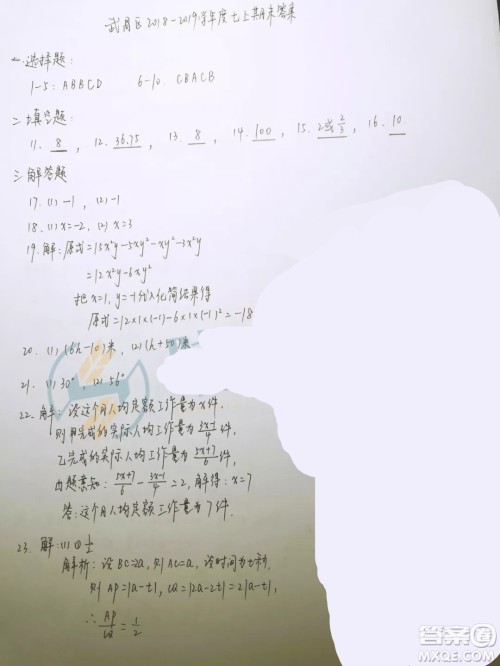 武昌区2018-2019学年度七上期末答案
一、选择题:
1-5: ABBCD 6-10. CBACB
二、填空题:
11. 8 , 12. 36.75 , 13. 8 , 14. 100 , 15. 2或2/3 , 16. 10.
三.解答题
17. (1) -1 , (2) -1
18. (1) x=-2, (2) x=3
19. 解: 原式=15x²y-5xy²-xy²-3x²y
=12x²y-6xy²
把x=1, y=-1代入化简结果得
原式=12×1×(-1)-6×1×(-1)²=-18
20. (1) (6h-10)米, (2) (h+50)米
21. (1) 30°, (2) 56°
22. 解: 设这个月人均定额工作量为x件.
则甲完成的实际人均工作量为(3x-1)/4件,
乙完成的实际人均工作量为(5x+7)/6件,
由题意知: (5x+7)/6-(3x-1)/4=2, 解得: x=7
答:这个月人均定额工作量为7件.
23. 解:(1)①1/2
解析: 设BC=2a, 则AC=a, 设时间为t秒,
则AP=|a-t|, CQ=|2a-2t|=2|a-t|,
∴AP/CQ=1/2
答案圈
MXQE.COM